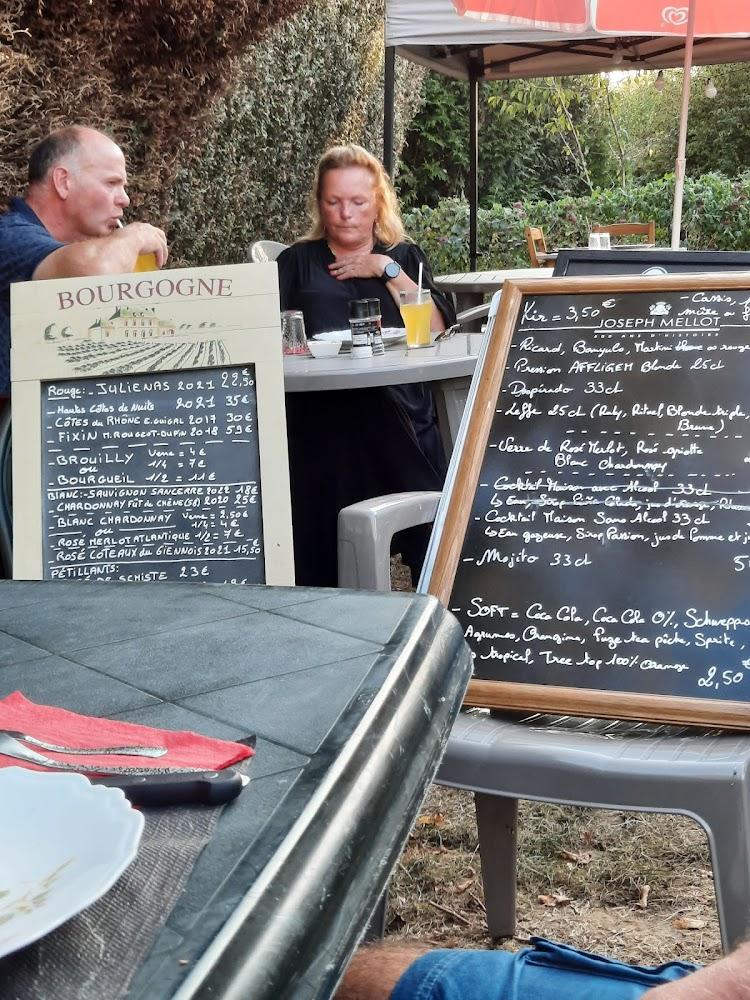 BOURGOGNE
Rouge: - JULIENAS 2021 22,50€
- Hautes Côtes de Nuits 2021 35€
- CÔTES du RHÔNE E.GUIGAL 2017 30€
- FIXIN M. ROUGEOT-DUPIN 2018 59€
- BROUILLY Verre = 4€
ou 1/4 = 7€
BOURGUEIL 1/2 = 11€
BLANC: - SAUVIGNON SANCERRE 2022 18€
- CHARDONNAY Fût de CHÊNE 2020 25€
BLANC CHARDONNAY Verre = 2,50€
ou 1/4 = 4€
ROSÉ MERLOT ATLANTIQUE 1/2 = 7€
- ROSÉ COTEAUX du GIENNOIS 2021 15,50
PÉTILLANTS:
DE SCHISTE 23€
Kir = 3,50€ - Cassis,
mûre
JOSEPH MELLOT
- Ricard, Banyuls, Martini blanc ou rouge
- Pression AFFLIGEM Blonde 25cl
- Despérado 33cl
- Leffe 25cl (Ruby, Rituel, Blonde, triple,
Brune)
- Verre de Rosé Merlot, Rosé
Blanc Chardonnay
- Cocktail Maison avec Alcool 33cl
- Cocktail Maison Sans Alcool 33cl
↳ Eau gazeuse, Sirop Passion, jus de Pomme et
- Mojito 33cl 5
- SOFT = Coca Cola, Coca Cola 0%, Schweppes
Agrumes, Orangina, Fuze tea pêche, Sprite,
tropical, Tree top 100% orange
2,50€